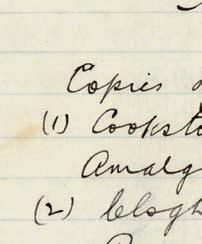 Copies
(1) Cooksto
Amalg
(2) Clogh